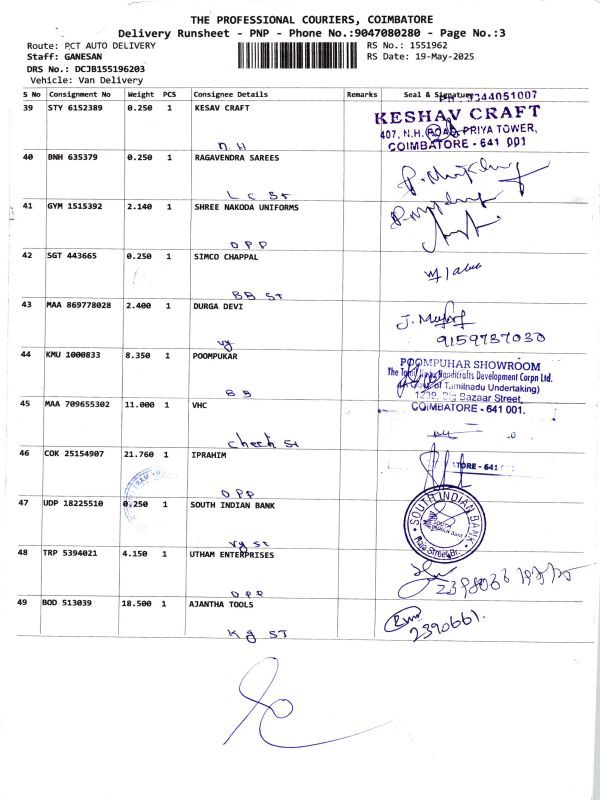 THE PROFESSIONAL COURIERS, COIMBATORE
Delivery Runsheet - PNP - Phone No.:9047080280 - Page No.:3
Route: PCT AUTO DELIVERY
RS No.: 1551962
Staff: GANESAN
RS Date: 19-May-2025
DRS No.: DCJB155196203
Vehicle: Van Delivery
S No Consignment No Weight PCS Consignee Details Remarks Seal & Signature
39 STY 6152389 0.250 1 KESAV CRAFT
KESHAV CRAFT
407, N.H. ROAD, PRIYA TOWER,
COIMBATORE - 641 001
N H
40 BNH 635379 0.250 1 RAGAVENDRA SAREES
L C St
41 GYM 1515392 2.140 1 SHREE NAKODA UNIFORMS
OPP
42 SGT 443665 0.250 1 SIMCO CHAPPAL
BB St
43 MAA 869778028 2.400 1 DURGA DEVI
9159737030
Vy
44 KMU 1000833 8.350 1 POOMPUKAR
POOMPUHAR SHOWROOM
Handicrafts Development Corpn Ltd.
of Tamilnadu Undertaking)
1239, Big Bazaar Street,
COIMBATORE - 641 001.
B B
45 MAA 709655302 11.000 1 VHC
Check St
46 COK 25154907 21.760 1 IPRAHIM
OPP
47 UDP 18225510 0.250 1 SOUTH INDIAN BANK
SOUTH INDIAN BANK
Raja Street Br.
Vy St
48 TRP 5394021 4.150 1 UTHAM ENTERPRISES
OPP
49 BOD 513039 18.500 1 AJANTHA TOOLS
2390661.
Kg ST